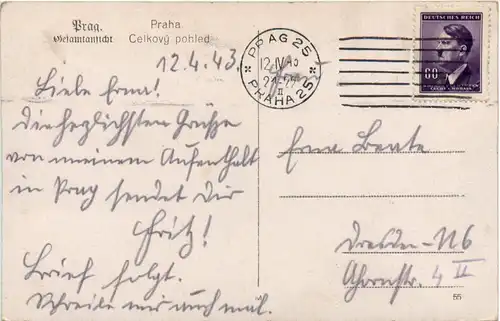 Prag. Praha
Gesamtansicht Celkový pohled
12.4.43.
PRAG 25
12.IV.43
II
PRAHA 25
DEUTSCHES REICH
60
BÖHMEN UND MÄHREN
ČECHY A MORAVA
Liebe Erna!
Die herzlichsten Grüße
von meinem Aufenthalt
in Prag sendet Dir
Fritz!
Brief folgt.
Schreibe mir auch mal.
Erna Beate
Dresden-N6
Ahornstr. 4 II
55